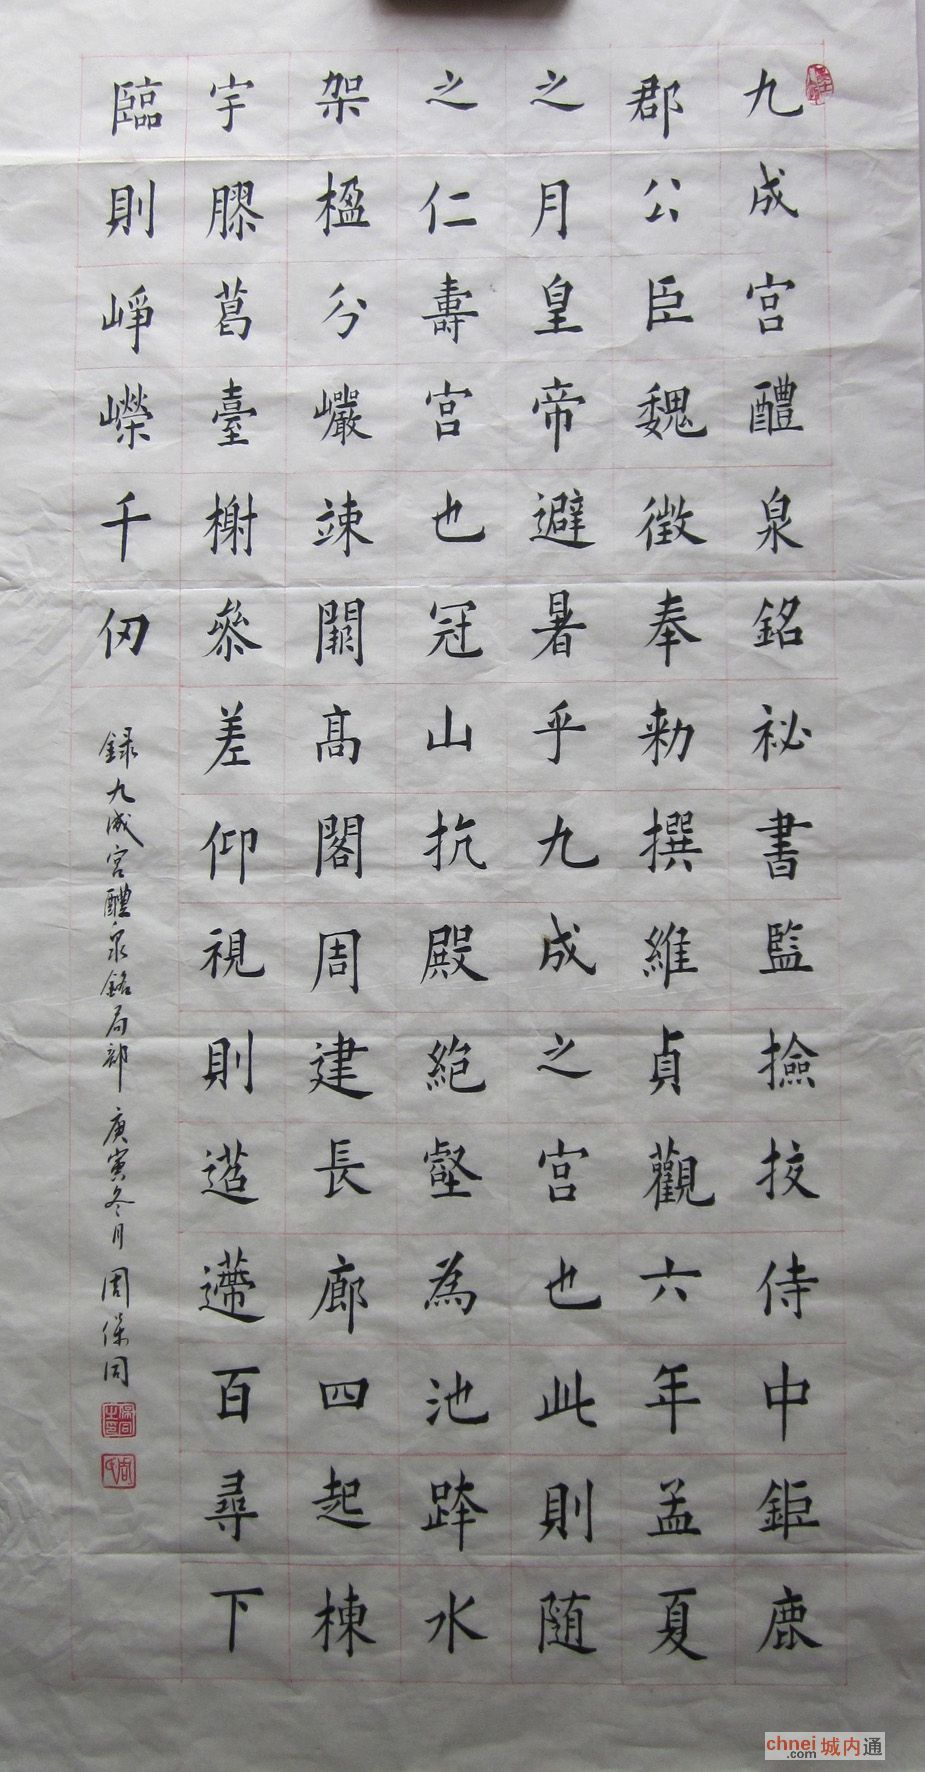 九成宮醴泉銘祕書監撿挍侍中鉅鹿
郡公臣魏徵奉勅撰維貞觀六年孟夏
之月皇帝避暑乎九成之宮也此則随
之仁壽宮也冠山抗殿絶壑為池跨水
架楹分巖竦闕高閣周建長廊四起棟
宇膠葛臺榭叅差仰視則迢遰百尋下
臨則崢嶸千仞
録九成宮醴泉銘局部 庚寅冬月 周保同
chnei.com 城内通